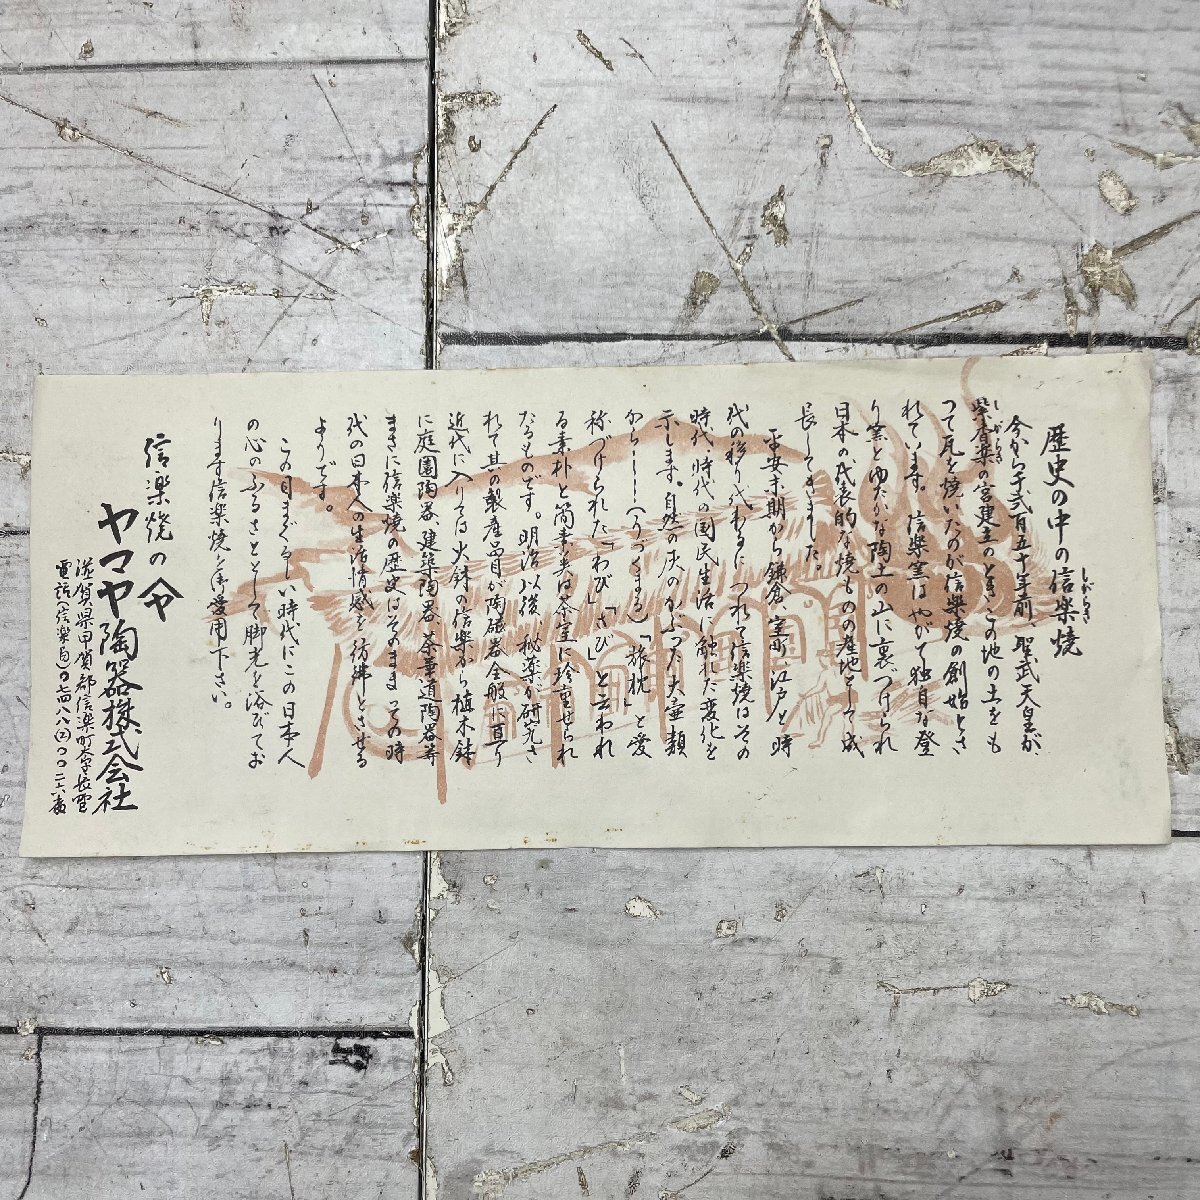 歴史の中の信楽焼
しがらき
今から千弐百五十年前、聖武天皇が、
紫香楽の宮建立のときこの地の土をも
しがらき
って瓦を焼いたのが信楽焼の創始とさ
れています。信楽窯はやがて独自な登
り窯とゆたかな陶土の山に裏づけられ
日本の代表的な焼もの の産地として成
長してきました。
平安末期から鎌倉、室町、江戸と時
代の移り代わるにつれて信楽焼はその
時代、時代の国民生活に触れた変化を
示します。自然の灰のかぶった大壷類
から――(うづくまる)「旅枕」と愛
称づけられた「わび」「さび」と云われ
る素朴と簡素美は茶室に珍重せられ
たものです。明治以後、秘薬が研究さ
れて其の製産品目が陶磁器全般に亘り
近代に入りては火鉢の信楽から植木鉢
に庭園陶器、建築陶器、茶華道陶器等
まさに信楽焼の歴史はそのまま その時
代の日本人の生活情感を彷彿とさせる
ようです。
この目まぐるしい時代にこの日本人
の心のふるさととして脚光を浴びてお
ります信楽焼を御愛用下さい。
信楽焼の ヤ
ヤマヤ陶器株式会社
滋賀県甲賀郡信楽町字長野
電話(信楽局)〇七四八八(二)〇〇二六番